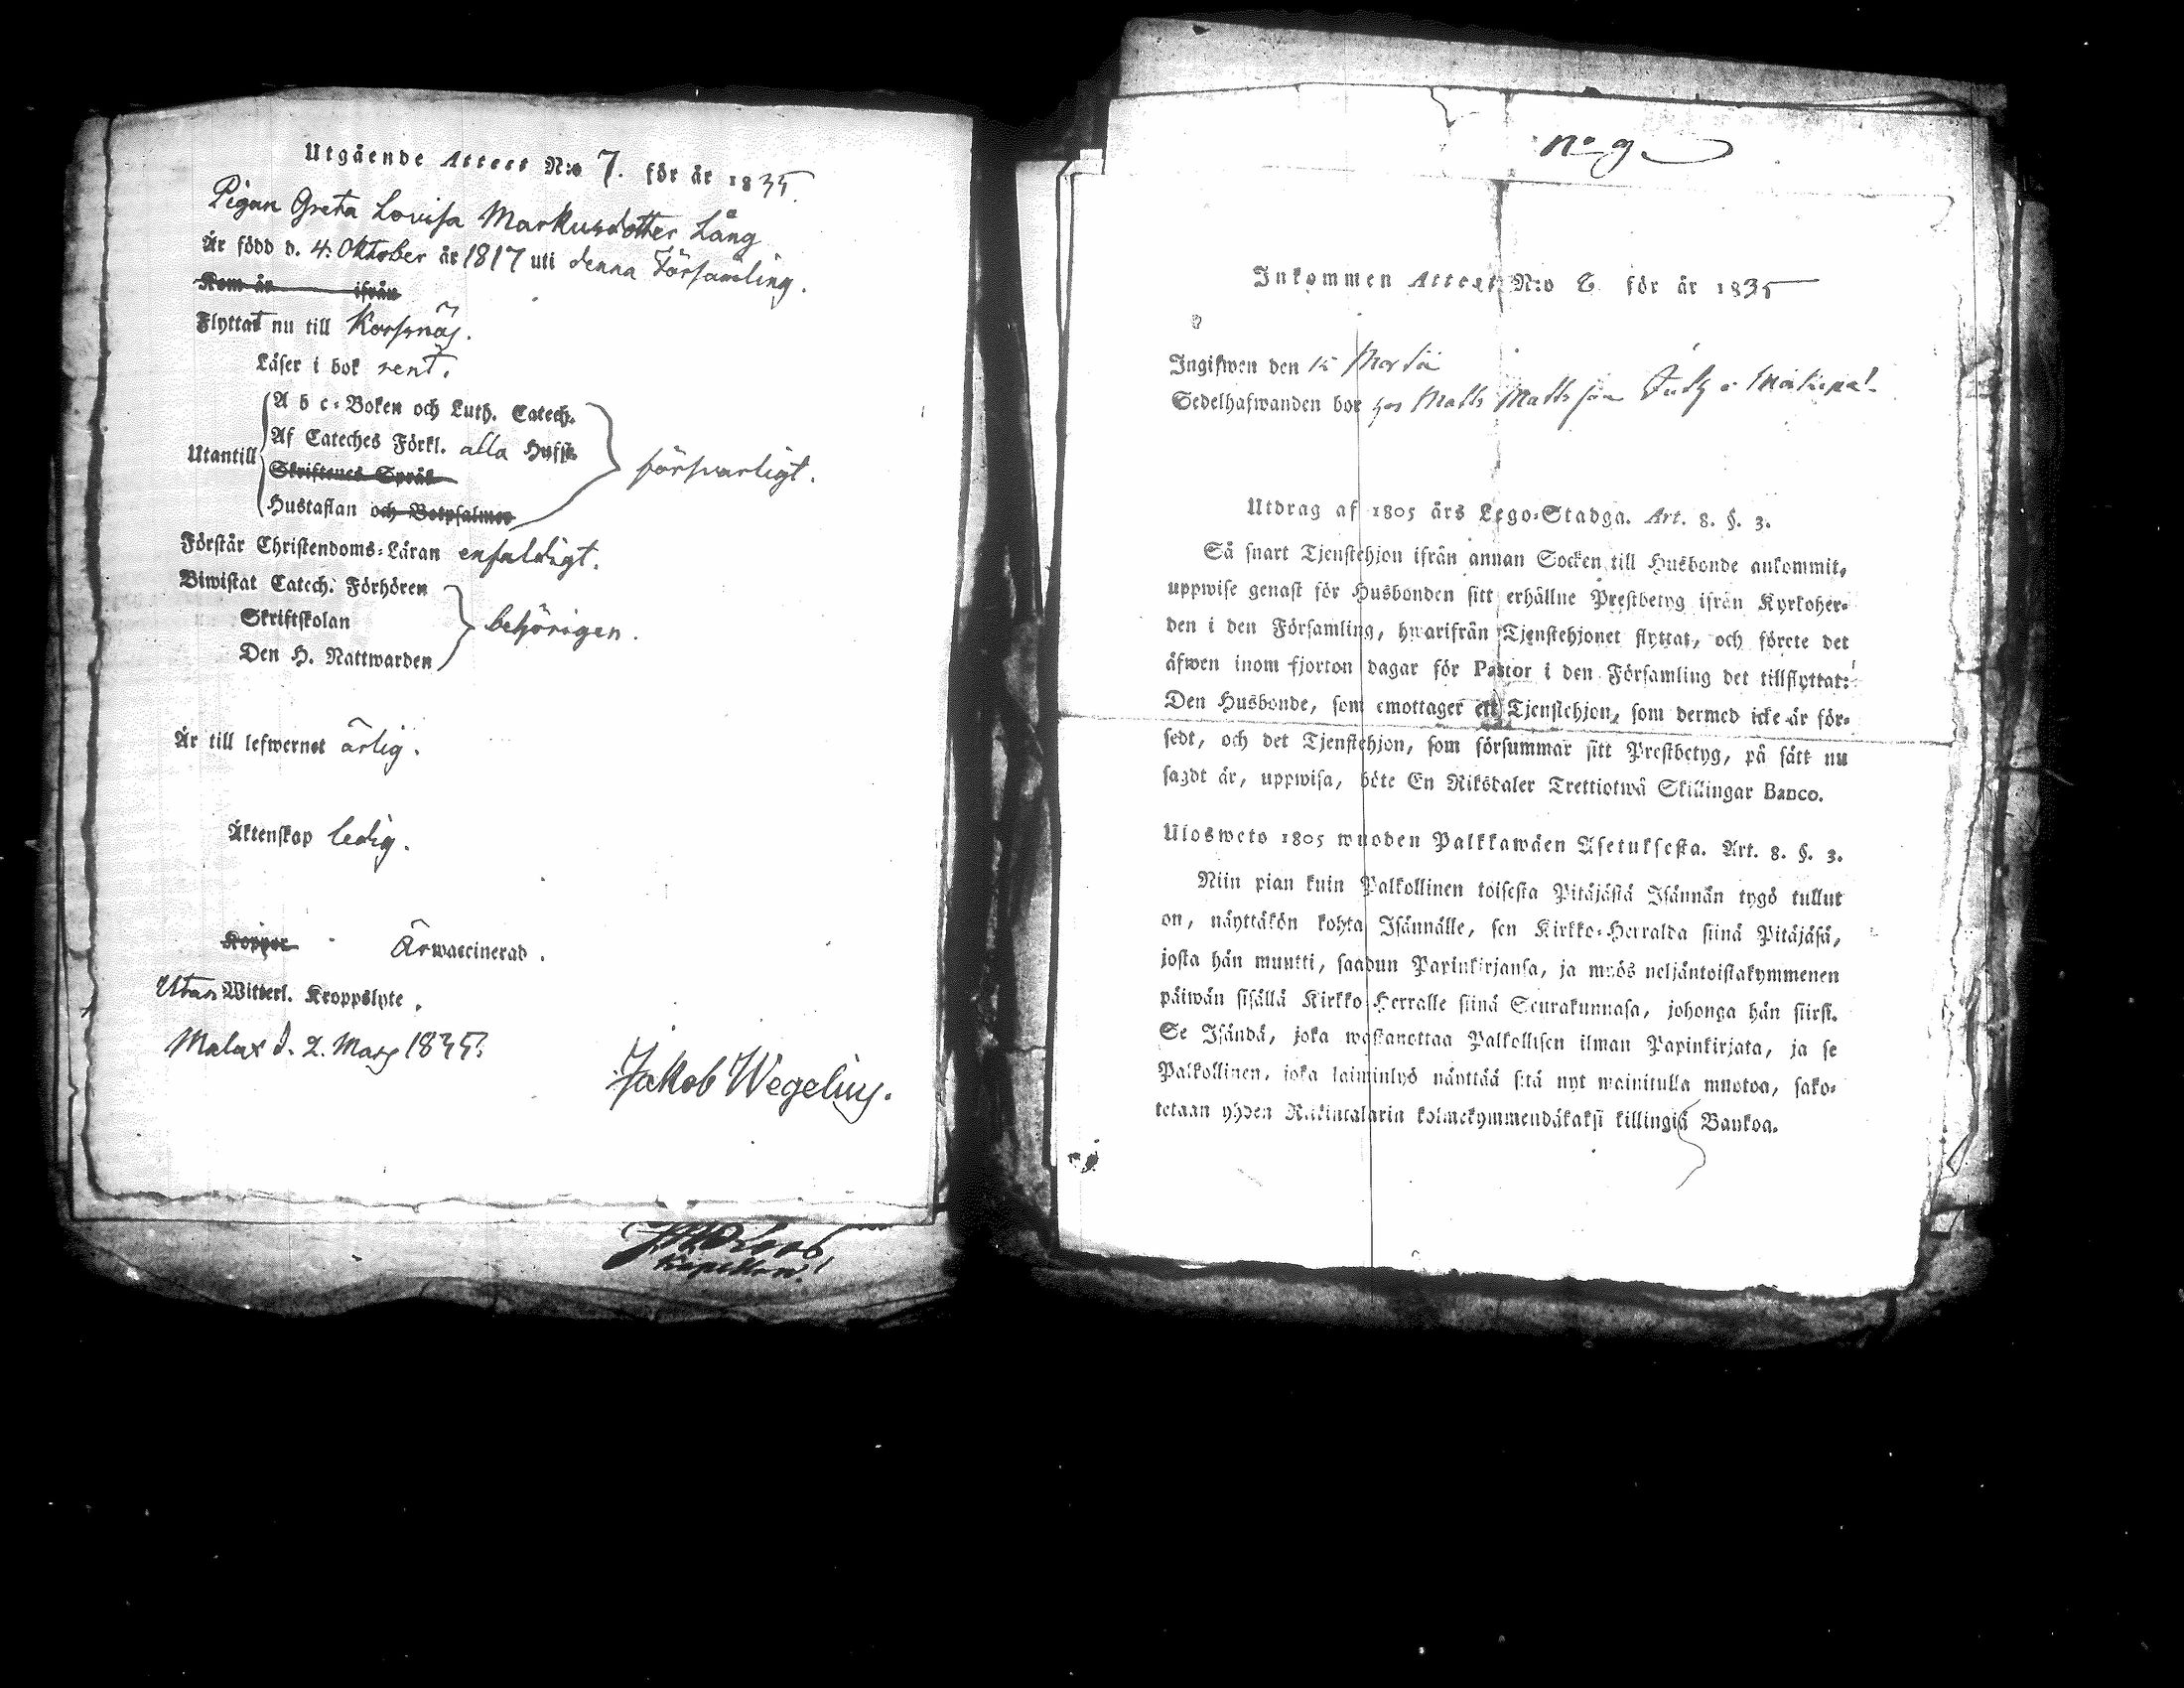 Utgående Attest N:o 7. för år 1835.
Pigan Greta Lovisa Markusdotter Lång
Är född d. 4. Oktober år 1817 uti denna Församling.
Kom år ifrån
Flyttat nu till Korsnäs.
Läser i bok rent.
A b c-Boken och Luth. Catech.
Af Cateches Förkl. alla Hufst.
Utantill
Skriftenes Språk
försvarligt.
Hustaflan och Botpsalmer
Förstår Christendoms-Läran enfaldigt.
Biwistat Catech. Förhören
Skriftskolan
behörigen.
Den H. Nattwarden
Är till lefwernet ärlig.
Äktenskap ledig.
Koppor Är waccinerad.
Utan Witterl. Kroppslyte.
Malax d. 2. Mars 1835.
Jakob Wegelius.
Kapellan
No 9
Inkommen Attest N:o för år 1835
Ingifwen den 15 Martii
Sedelhafwanden bor hos Matts Mattsson
Utdrag af 1805 års Lego-Stadga. Art. 8. §. 3.
Så snart Tjenstehjon ifrån annan Socken till Husbonde ankommit,
uppwise genast för Husbonden sitt erhållne Prestbetyg ifrån Kyrkoher-
den i den Församling, hwarifrån Tjenstehjonet flyttat, och förete det
äfwen inom fjorton dagar för Pastor i den Församling det tillflyttat:
Den Husbonde, som emottager ett Tjenstehjon, som dermed icke är för-
sedt, och det Tjenstehjon, som försummar sitt Prestbetyg, på sätt nu
sagdt är, uppwisa, böte En Riksdaler Trettiotwå Skillingar Banco.
Ulosweto 1805 wuoden Palkkawäen Asetuksesta. Art. 8. §. 3.
Niin pian kuin Palkollinen toisesta Pitäjästä Isännän tygö tullut
on, näyttäkön kohta Isännälle, sen Kirkko-Herralda siinä Pitäjäsä,
josta hän muutti, saadun Papinkirjansa, ja myös neljäntoistakymmenen
päiwän sisällä Kirkko-Herralle siinä Seurakunnasa, johonga hän siirst.
Se Isändä, joka wastanottaa Palkollisen ilman Papinkirjata, ja se
Palkollinen, joka laiminlyö näyttää sitä nyt mainitulla muotoa, sako-
tetaan yhden Riikintalarin kolmekymmendäkaksi killingiä Bankoa.